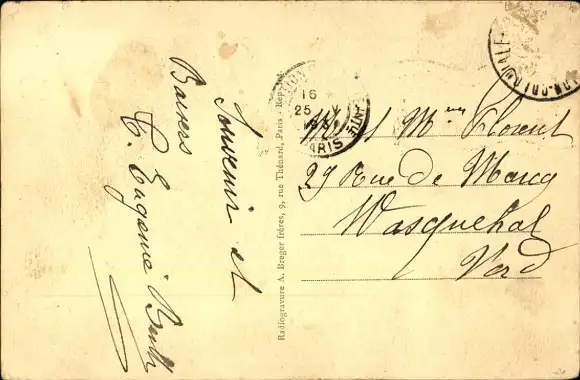 Souvenir et
Baisers
E. Eugénie
Radiogravure A. Breger frères, 9, rue Thénard, Paris - Repr
16
25
PARIS
M et Mme Florent
29 Rue de Marcq
Wasquehal
Nord